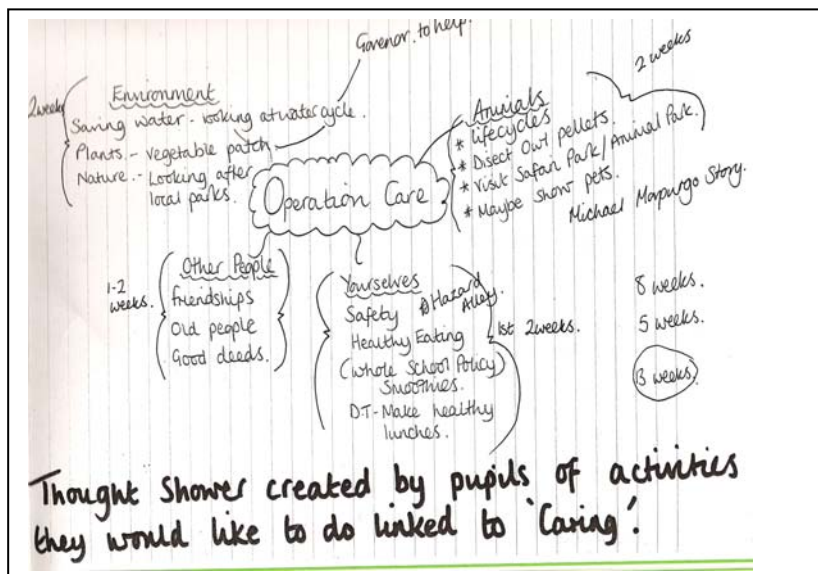 Govenor to help.
2 weeks
Environment
Saving water - looking at water cycle.
Plants. - vegetable patch
Nature. - Looking after
local parks.
2 weeks
Animals
* lifecycles
* Disect Owl pellets.
* Visit Safari Park/Animal Park.
* Maybe Show pets.
Michael Morpurgo Story.
Operation Care
1-2
weeks.
Other People
friendships
Old people
Good deeds.
Yourselves
Safety Hazard
Alley.
Healthy Eating
(Whole School Policy)
Smoothies.
D.T - Make healthy
lunches.
1st 2 weeks.
8 weeks.
5 weeks.
13 weeks.
Thought Shower created by pupils of activities
they would like to do linked to 'Caring'.